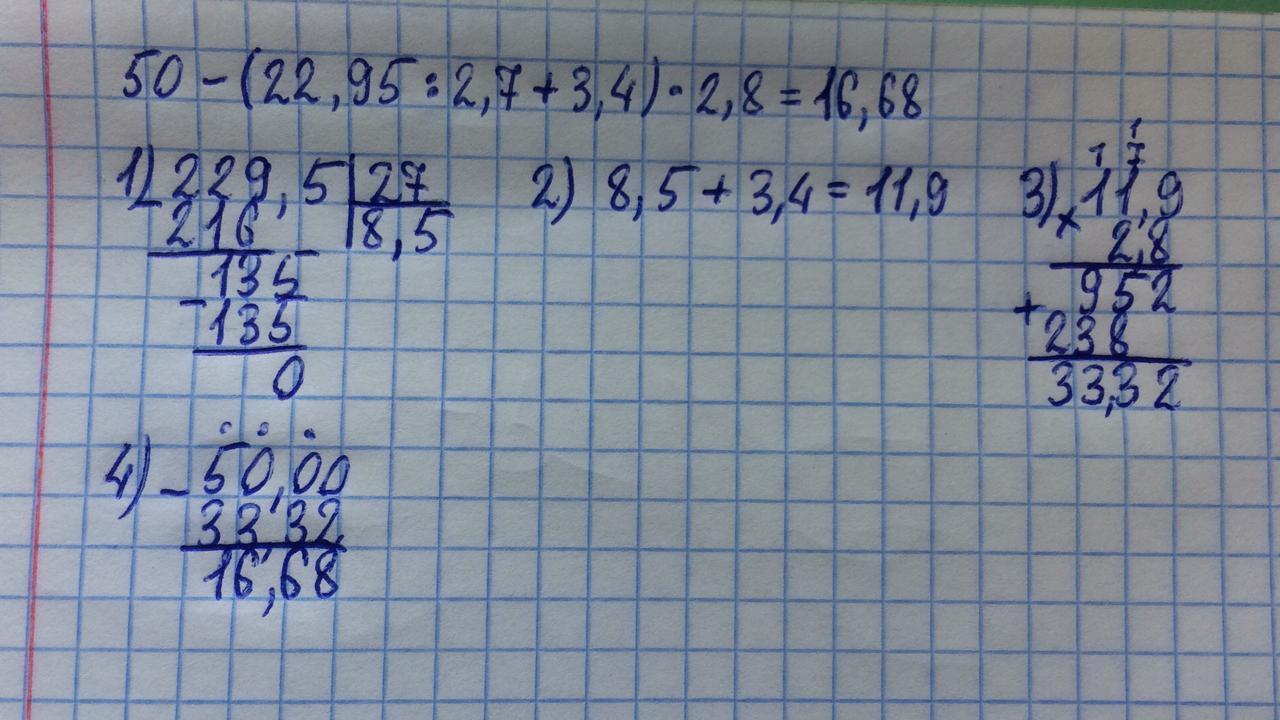 50 - (22,95 : 2,7 + 3,4) · 2,8 = 16,68
1) 229,5 | 27
- 216 | 8,5
135
- 135
0
2) 8,5 + 3,4 = 11,9
1
1 7
3) × 11,9
2,8
952
+ 238
33,32
4) - 50,00
33,32
16,68